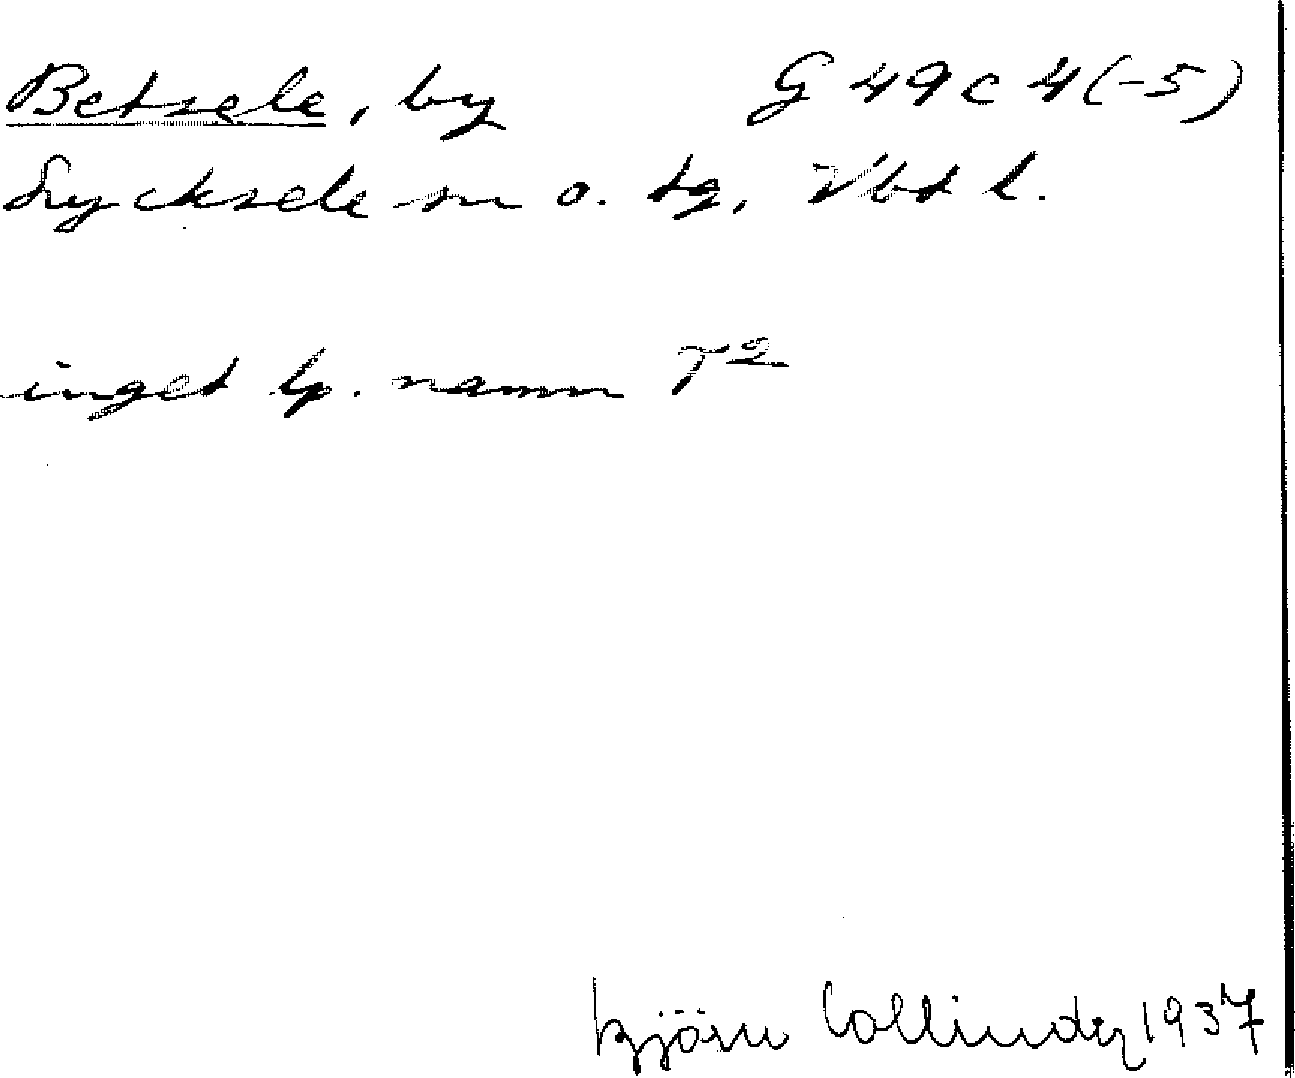 Betsele, by G 49 c 4(-5)
Lycksele sn o. tg, Vbt l.
inget lp. namn T²
Björn Collinder 1937